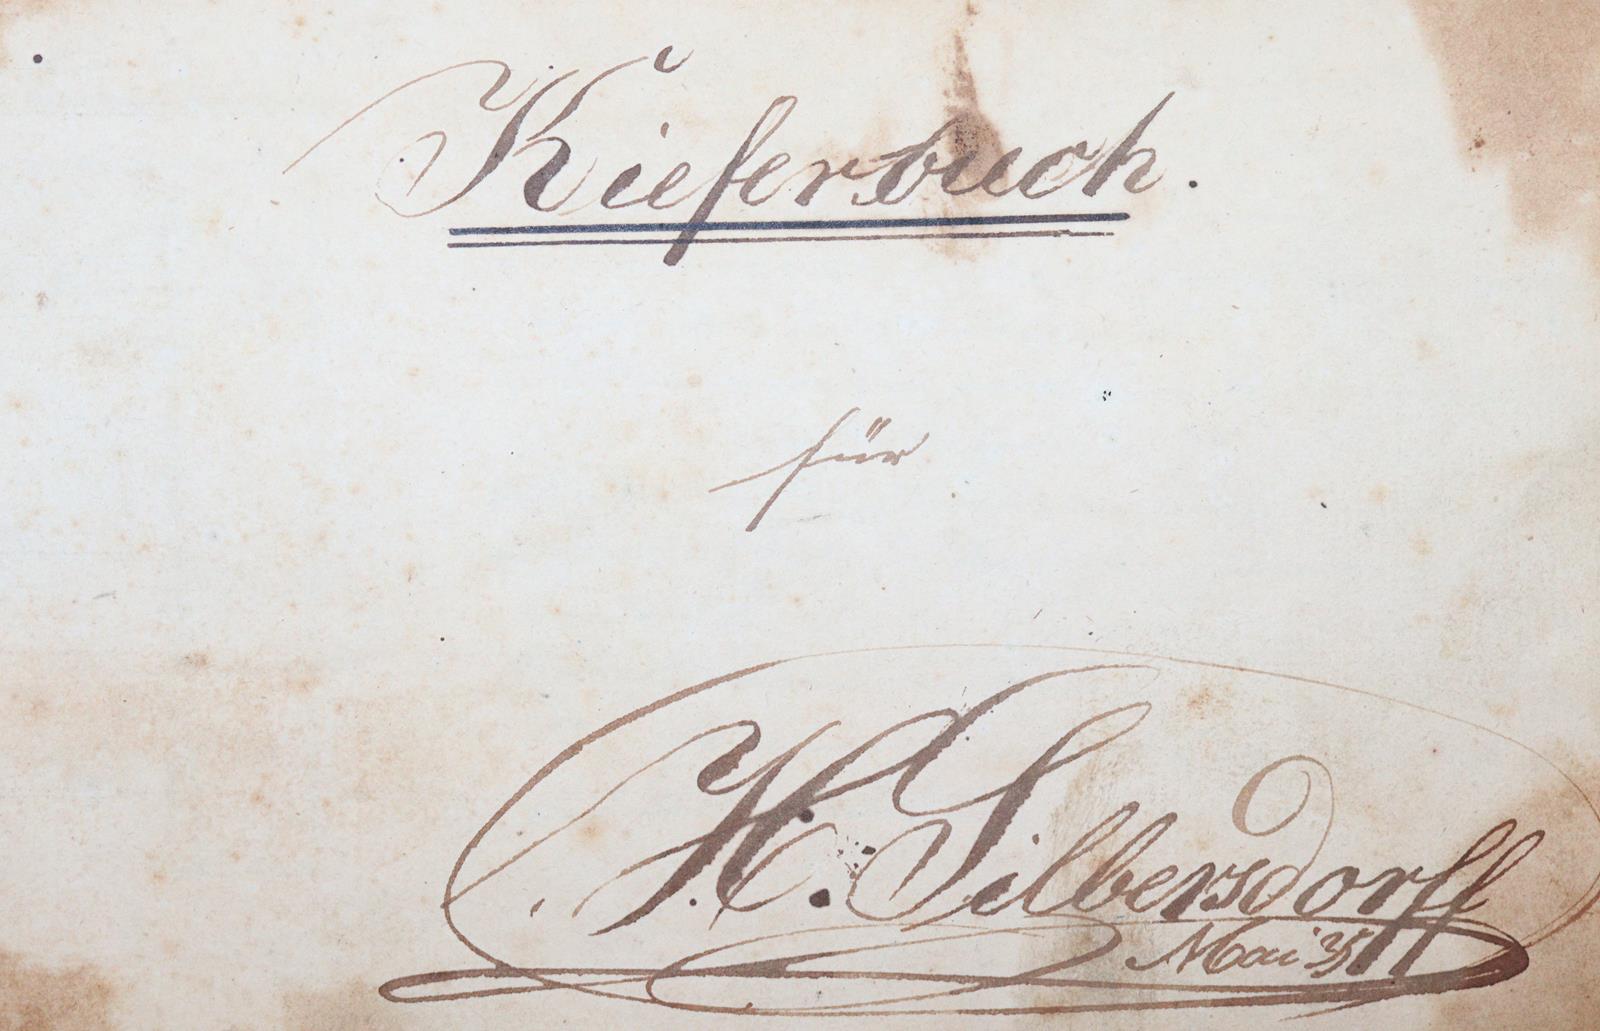 Kieferbuch.
für
H. Silbersdorff
Mai